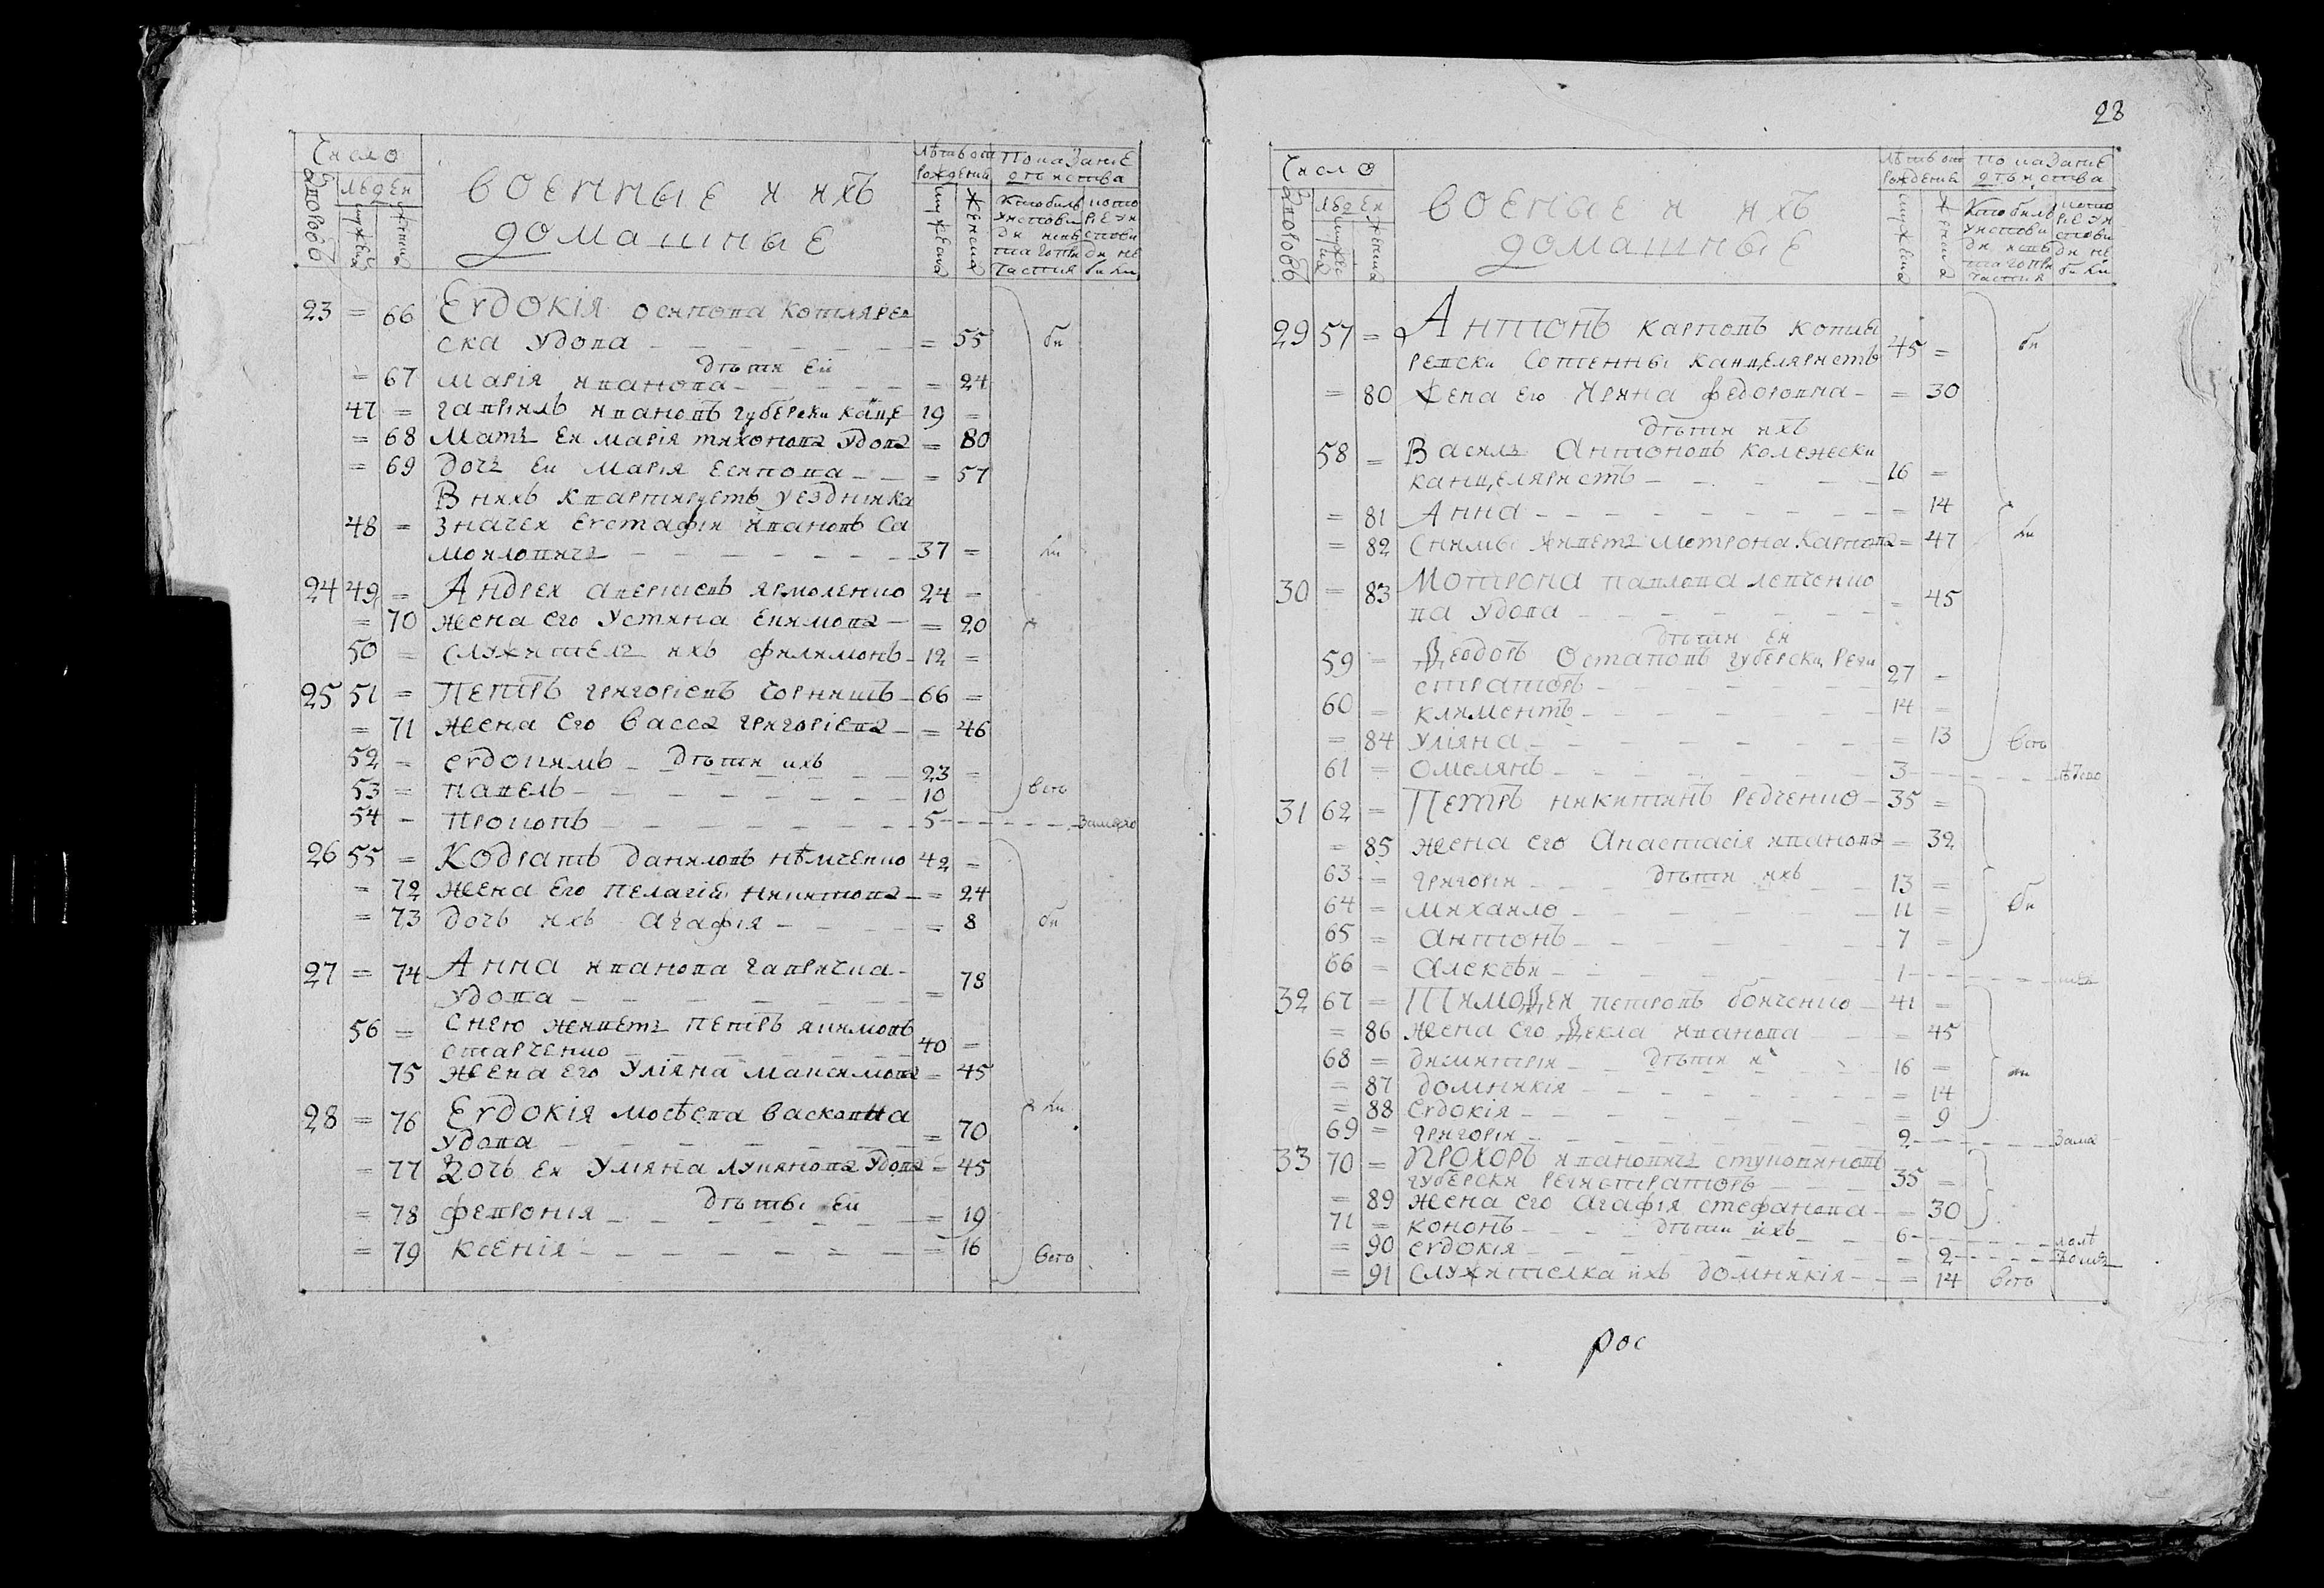 Число
дворовъ
людей
мужеска
женска
военные и ихъ
домашные
лѣтъ от
рождения
мужеска
женска
Показание
дѣйства
Кто былъ
у исповѣ
ди
с~ты~
таго при
частия
кто
не
исповѣ
ди не
былъ
23 = 66 Евдокія осипова котляревска
ска удова = 55 бы
дѣти ей
= 67 марія иванова = 24
47 = гавриилъ ивановъ губерски канце 19 =
= 68 мать еи марія тихонова удова = 80
= 69 дочь еи Марія есипова = 57
В нихъ квартируетъ уездника
48 = значеи евстафіи ивановъ са
моиловичъ 37 = ли
24 49 = Андреи аверкіевъ ярмоленко 24 =
= 70 жена его устина екимова = 20
50 = служитель ихъ филимонъ 12 =
25 51 = Петръ григоріевъ чорнишъ 66 =
= 71 жена его васса григоріева = 46
52 = евдокимъ дѣти ихъ 23 =
53 = павелъ 10 всто
54 = прокопъ 5
26 55 = Кодратъ даниловъ нѣмченко 42 =
= 72 жена его пелагіѣ никитова = 24
= 73 дочъ ихъ агафія = 8 бы
27 = 74 Анна иванова гавричка
удова = 78
56 = снею живетъ петръ якимовъ
старченко 40 =
75 жена его уліяна максимова = 45
28 = 76 Евдокія мосѣева васковна
удова = 70 ли
= 77 дочъ еи уліяна лукянова удова = 45
дѣты ей
= 78 феврония = 19
= 79 ксенія = 16 всто
28
Число
дворовъ
людей
мужеска
женска
военые и ихъ
домашные
лѣтъ от
рождения
мужеска
женска
показание
дѣйства
29 57 = Антонъ карповъ котля
ревски сотенны канцеляристъ 45 = бы
= 80 жена его ирина федоровна = 30
дѣти ихъ
58 = Василь антоновъ колежски
канцеляристъ 16 =
= 81 Анна = 14
= 82 снимы живетъ мотрона карпова = 47 ли
30 = 83 Мотрона павлова левченко
ва удова = 45
дѣти еи
59 = Ѳеодоръ остаповъ губерски реги
страторъ 27 =
60 = климентъ 14 =
= 84 уліяна = 13 всто
61 = омелянъ 3
31 62 = Петръ никитинъ редченко 35 =
= 85 жена его анастасія иванова = 32
63 = григорій дѣти ихъ 13 =
64 = михаило 11 = бы
65 = антонъ 7 =
66 = алексѣй 1
32 67 = Тимоѳеи петровъ бонченко 41 =
= 86 жена его ѳекла иванова = 45
68 = димитрія дѣти и 16 =
= 87 домникія = 14
= 88 евдокія = 9
69 = григорія 2
33 70 = Прохоръ ивановичъ ступовиновъ
губерски регистраторъ 35 =
= 89 жена его агафія стефанова = 30
71 = кононъ дѣти ихъ 6
= 90 евдокія = 2
= 91 служителка ихъ домникія = 14 всто
рос